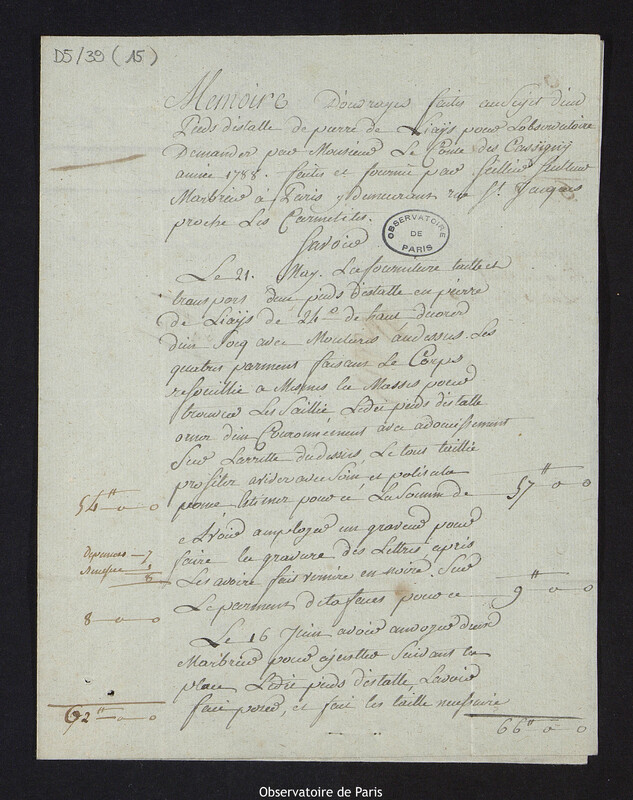 D5/39 (15)
Memoire D'ouvrages faites au Sujet d'un
Pieds d'estalle de pierre de Liays pour Lobservatoire
Demander par Monsieur Le Comte des Cassigny
année 1788. faites et fournie par
Marbrier à Paris, demeurant rue St. Jacques
proche Les Carmelites.
Savoir
OBSERVATOIRE
DE
PARIS
Le 21. May. La fourniture taille et
transport d'un pieds d'estalle en pierre
de Liays de 24 de haut
d'un Socq avec Moulures au dessus. Les
quatres parment faisant Le Corps
refouillie a Mesmes la Masse pour
trouver Les Saillie Ledit pieds d'estalle
orner d'un Couronnement avec adouissement
Sur Larrette du dessus. Le tous taillié
profiler avec Soin et polis a la
ponce, Estimer pour ce La Somme de
57tt " o o
54tt " o o
e Avoir amploÿer un graveur pour
faire la gravure des Lettres, après
Les avoire fait vernire en noire. Sur
Le parment de la faces pour ce
9tt o o
7
8
8 o o
Le 16 Juin avoir anvoÿer d'un
Marbrier pour ajuster Suivant la
place Ledit pieds d'estalle, Lavoir
fait poser, et fait les taille nessaire
62tt o o
66tt o o
Observatoire de Paris